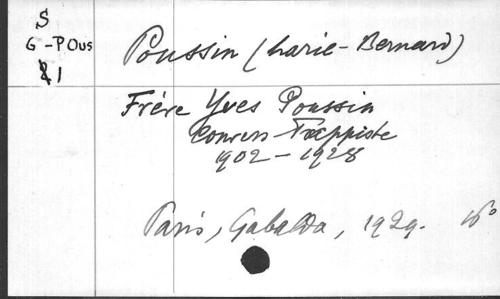 S
G-POus
1
Poussin (Marie-Bernard)
Frère Yves Poussin
Convers Trappiste
1902-1928
Paris, Gabalda, 1929. 16°